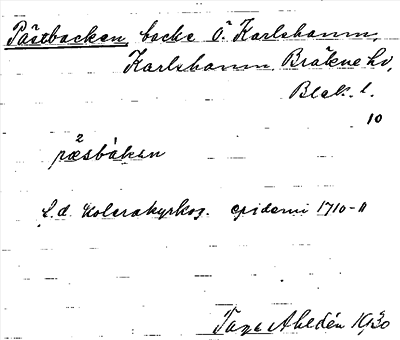 Pästbacken, backe Ö. Karlshamn,
Karlshamn Bräkne hd,
Blek. l.
10
2
pæsbàkan
f.d. kolerakyrkog. epidemi 1710-11
Tage Ahldén 1930